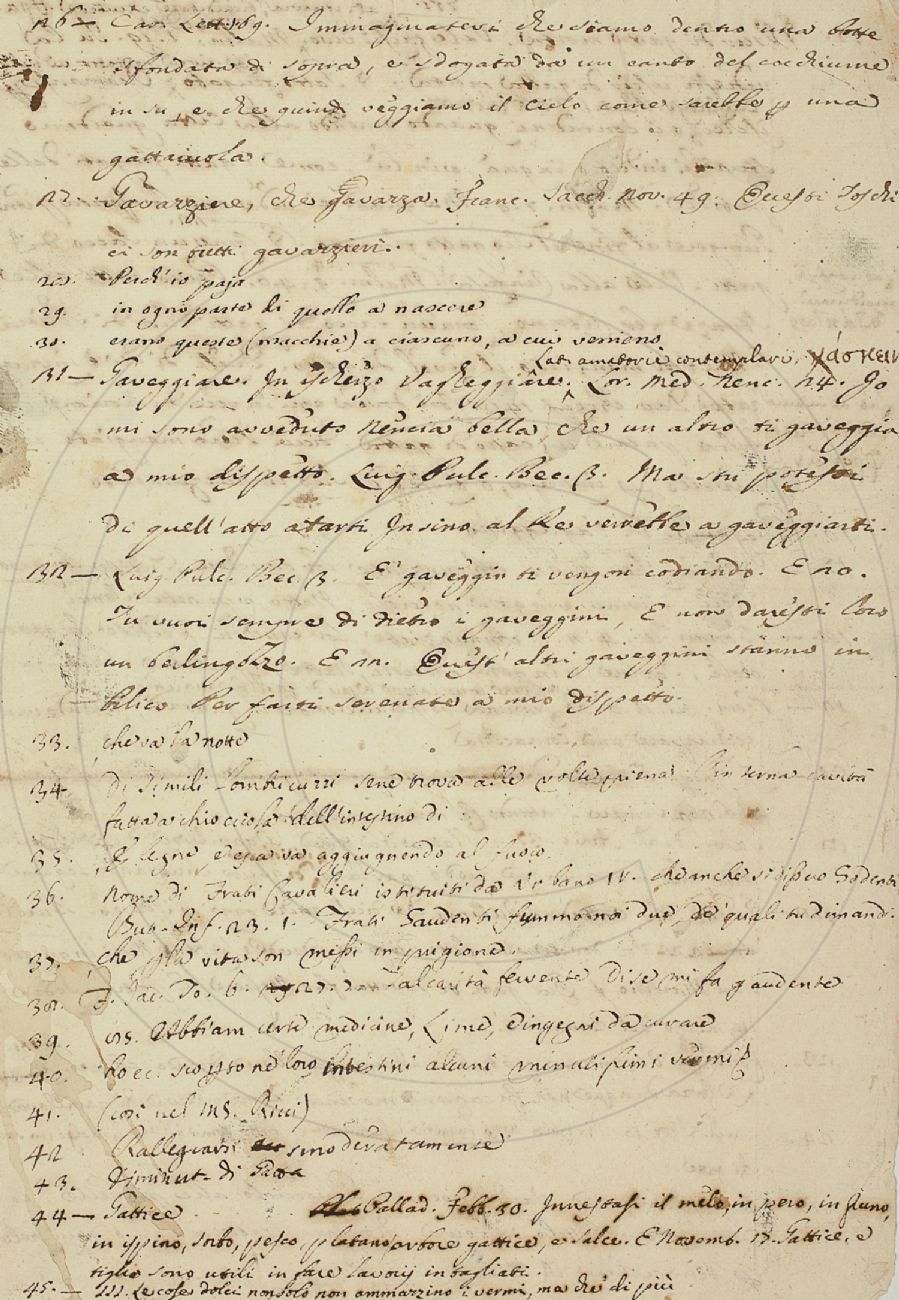 126 — Car. Lett. 169. Immaginatevi che siamo dentro una botte
sfondata di sopra, e sdogata da un canto del cocchiume
in su, e che quindi veggiamo il cielo come sarebbe p una
gattaiuola.
127. Gavazziere, che Gavazza. Franc. Sacch. Nov. 49. Questi Toschi
ci son tutti gavazzieri.
28. Perch'io paja
29. in ogni parte di quello a nascere
30. erano queste (macchie) a ciascuno, a cui venieno
Lat. amatorie contemplari. χάσκειν
131 — Gaveggiare. In ischerzo Vagheggiare. Lor. Med. Nenc. 24. Io
mi sono avveduto Nencia bella, che un altro ti gaveggia
a mio dispetto. Luig. Pulc. Bec. 3. Ma stu potessi
di quell'atto atarti Insino al Re verrebbe a gaveggiarti.
132 — Luig. Pulc. Bec. 3. E' gaveggin ti vengon codiando. E 20.
Tu vuoi sempre di dietro i gaveggini, E non daresti loro
un berlingozzo. E 21. Quest'altri gaveggini stanno in
bilico Per farti serenate a mio dispetto.
33. che va la notte
34. Di simili lombricuzzi sene trova alle volte piena l'interna cavità
fatta a chiocciola dell'intestino di
35. le legne, ch'essa va aggiugnendo al fuoco
36. Nome di Frati Cavalieri istituiti da Urbano IV. che anche si disse Godenti
But. Inf. 23. 1. Frati Gaudenti fummo noi due, de' quali tu dimandi.
37. che p la vita son messi in prigione.
38. F. Jac. To. 6. 27. 2 al carità fervente di se mi fa gaudente
39. Abbiam certe medicine, Lime, e ingegni da cavare
40. ho ec. scorto ne' loro intestini alcuni minutissimi vermi
41. (così nel MS. Ricci)
42 Rallegrarsi smoderatamente
43. Diminut. di Gava
44 — Gattice Pallad. Febb. 30. Innestasi il melo, in pero, in pruno,
in ispino, sorbo, pesco, platano, arbore gattice, e salce. E Novemb. 15. Gattice, e
tiglio sono utili in fare lavorij intagliati.
45. — Le cose dolci non solo non ammazzino i vermi, ma che di più